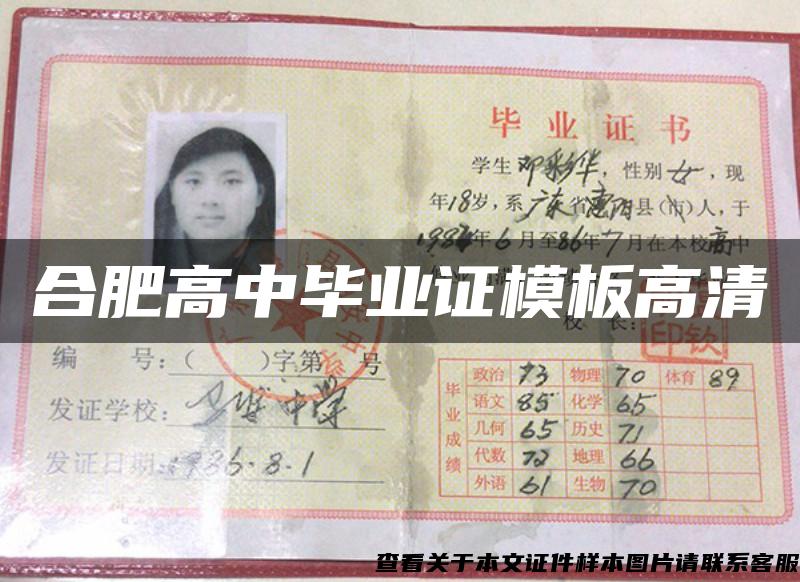 毕业证书
学生邓彩华，性别女，现
年18岁，系广东省惠阳县(市)人，于
年6月至86年7月在本校高中
合肥高中毕业证模板高清
校长：
印钦
编 号：( )字第 号
发证学校：
中学
发证日期：1986.8.1
毕业成绩
政治 73 物理 70 体育 89
语文 85 化学 65
几何 65 历史 71
代数 72 地理 66
外语 61 生物 70
查看关于本文证件样本图片请联系客服